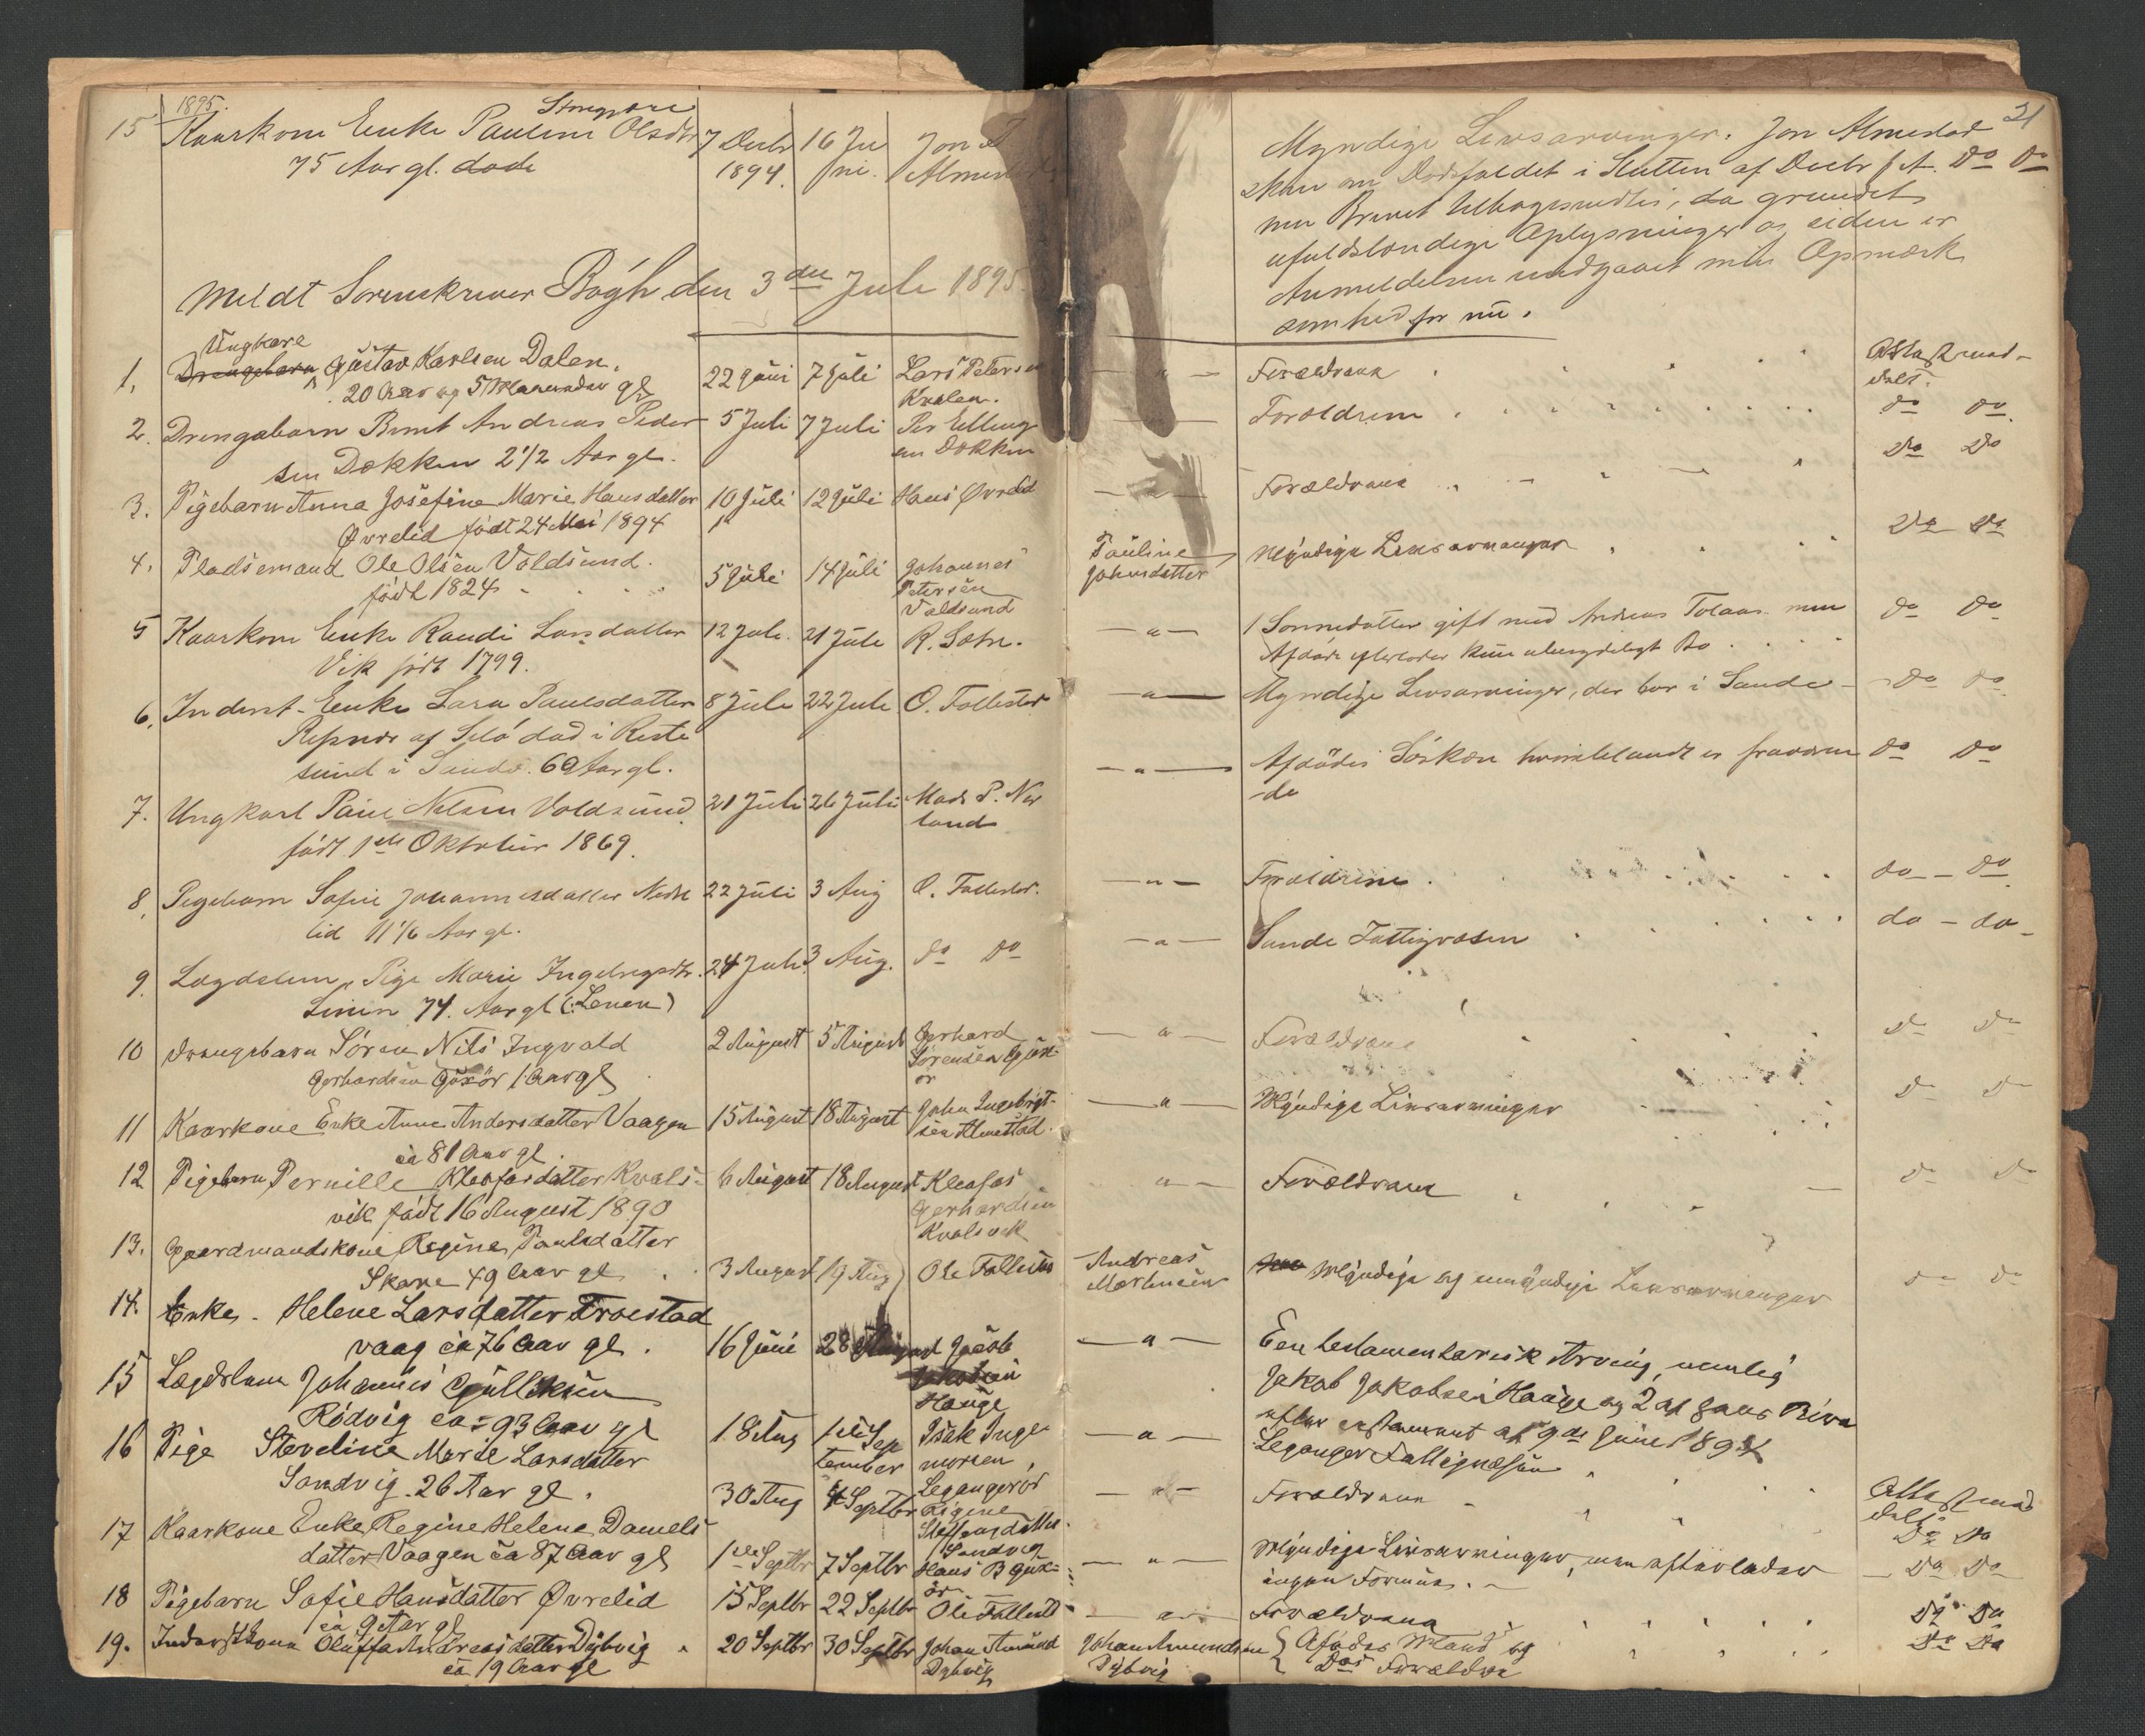 1895.
15 Kaarkone Enke Pauline Olsdtr 7 Decbr 16 Ju Jon
75 Aar gl. døde 1894. ni. Almestad
Meldt Sorenskriver Bøgh den 3die Juli 1895.
Ungkare
1. Drengebarn Gustav Karlsen Dalen. 22 Juni 7 Juli Lars Petersen
20 Aar og 5 Maaneder gl Kvalen.
2. Drengebarn Bernt Andreas Peder 5 Juli 7 Juli Per Elling
sen Dokken 2 1/2 Aar gl. sen Dokken
3. Pigebarn Anna Josefine Marie Hansdatter 10 Juli 12 Juli Hans Øvrelid
Øvrelid født 24 Mai 1894
4. Pladsemand Ole Olsen Voldsund. 5 Juli 14 Juli Johannes
født 1824 Petersen
Voldsund
5 Kaarkone Enke Randi Larsdatter 12 Juli. 21 Juli R. Sætre.
Vik født 1799.
6. Inderst-Enke Lara Paulsdatter 8 Juli 22 Juli O. Tallestad
af Selø død i
sund i Sande. 69 Aar gl.
7. Ungkarl Paul Nilsen Voldsund 21 Juli 26 Juli Mads P. Nær
født 1ste Oktober 1869. land
8. Pigebarn Sofie Johannesdatter Nedre 22 Juli 3 Aug O. Tallestad.
lid 11 1/6 Aar gl.
9. Lægdslem, Pige Marie Ingebrigtsdtr. 24 Juli 3 Aug. do do
74. Aar gl (:Lenen)
10 Drengebarn Søren Nils Ingvald 2 August 5 August Gerhard
Gerhardsen Gjøsør 1 Aar gl Sørensen Gjøs-
ør
11 Kaarkone Enke Anne Andersdatter Vaagen 15 August 18 August John Ingebrigt-
ca 81 Aar gl. sen Almestad.
12 Pigebarn Pernille Kleofasdatter Kvals- 6 August 18 August Kleofas
vik født 16 August 1890 Gerhardsen
Kvalsvik
13. Gaardmandskone Regine Paulsdatter
Skare 49 Aar gl. 3 August 19 Aug Ole Tallestad
14. Enke. Helene Larsdatter Froestad
vaag ca 76 Aar gl. 16 Juni 28 August Jacob
Jakobsen
Hauge
15 Lægdslem Johannes Gulliksen
Rødvig ca = 93 Aar gl 18 Aug 1ste Sep Isak Inge
tember morsen,
Leganger
16 Pige Steveline Marie Larsdatter
Sandvig. 26 Aar gl. 30 Aug 4 Septbr Regine
Steffensdatter
Sandvig
17 Kaarkone Enke Regine Helene Daniels
datter Vaagen ca 87 Aar gl 1ste Septbr 7 Septbr Hans B Gjøs-
ør
18 Pigebarn Sofie Hansdatter Øvrelid 15 Septbr 22 Septbr Ole Tallestad
ca 9 Aar gl
19. Inderstkone Oluffa Andreasdatter Dybvig 20 Septbr 30 Septbr Johan Amund
ca 19 Aar gl Dybvig
21
Myndige Livsarvinger. Jon Almestad
skrev om Dødsfaldet i Slutten af Decbr f. A. do do
men Brevet tilbagesendtes, da grundet
ufuldstændige Oplysninger og siden er
Anmeldelsen undgaaet min Opmærk
somhed før nu.
— " — Forældrene Attest med-
delt.
Forældrene do do
do do
— " — Forældrene
Pauline Myndige Livsarvinger do do
Johnsdatter
— " — 1 Sønnedatter gift med Andreas men do do
Afdøde efterlader kun ubetydeligt Bo
— " — Myndige Livsarvinger, der bor i Sande do do
— " — Afdødes Søsken hvoriblandt er fraværen do do
-de
— " — Forældrene do — do
— " — Sande Fattigvæsen do — do
— " — Forældrene do do
— " — Myndige Livsarvinger do do
— " — Forældrene do do
Andreas Myndige og umyndige Livsarvinger do do
Martinsen
— " — Een testamentarisk Arving, nemlig
Jakob Jakobsen Hauge og 2 af hans Børn
efter testament af 9de Juni 1894
— " — Leganger Fattigvæsen
— " — Forældrene Attest med
delt
do do
— " — Myndige Livsarvinger, men efterlader do do
ingen Formue.
— " — Forældrene do do
Johan Amundsen { Afdødes Mand og do do
Dybvig Des Forældre